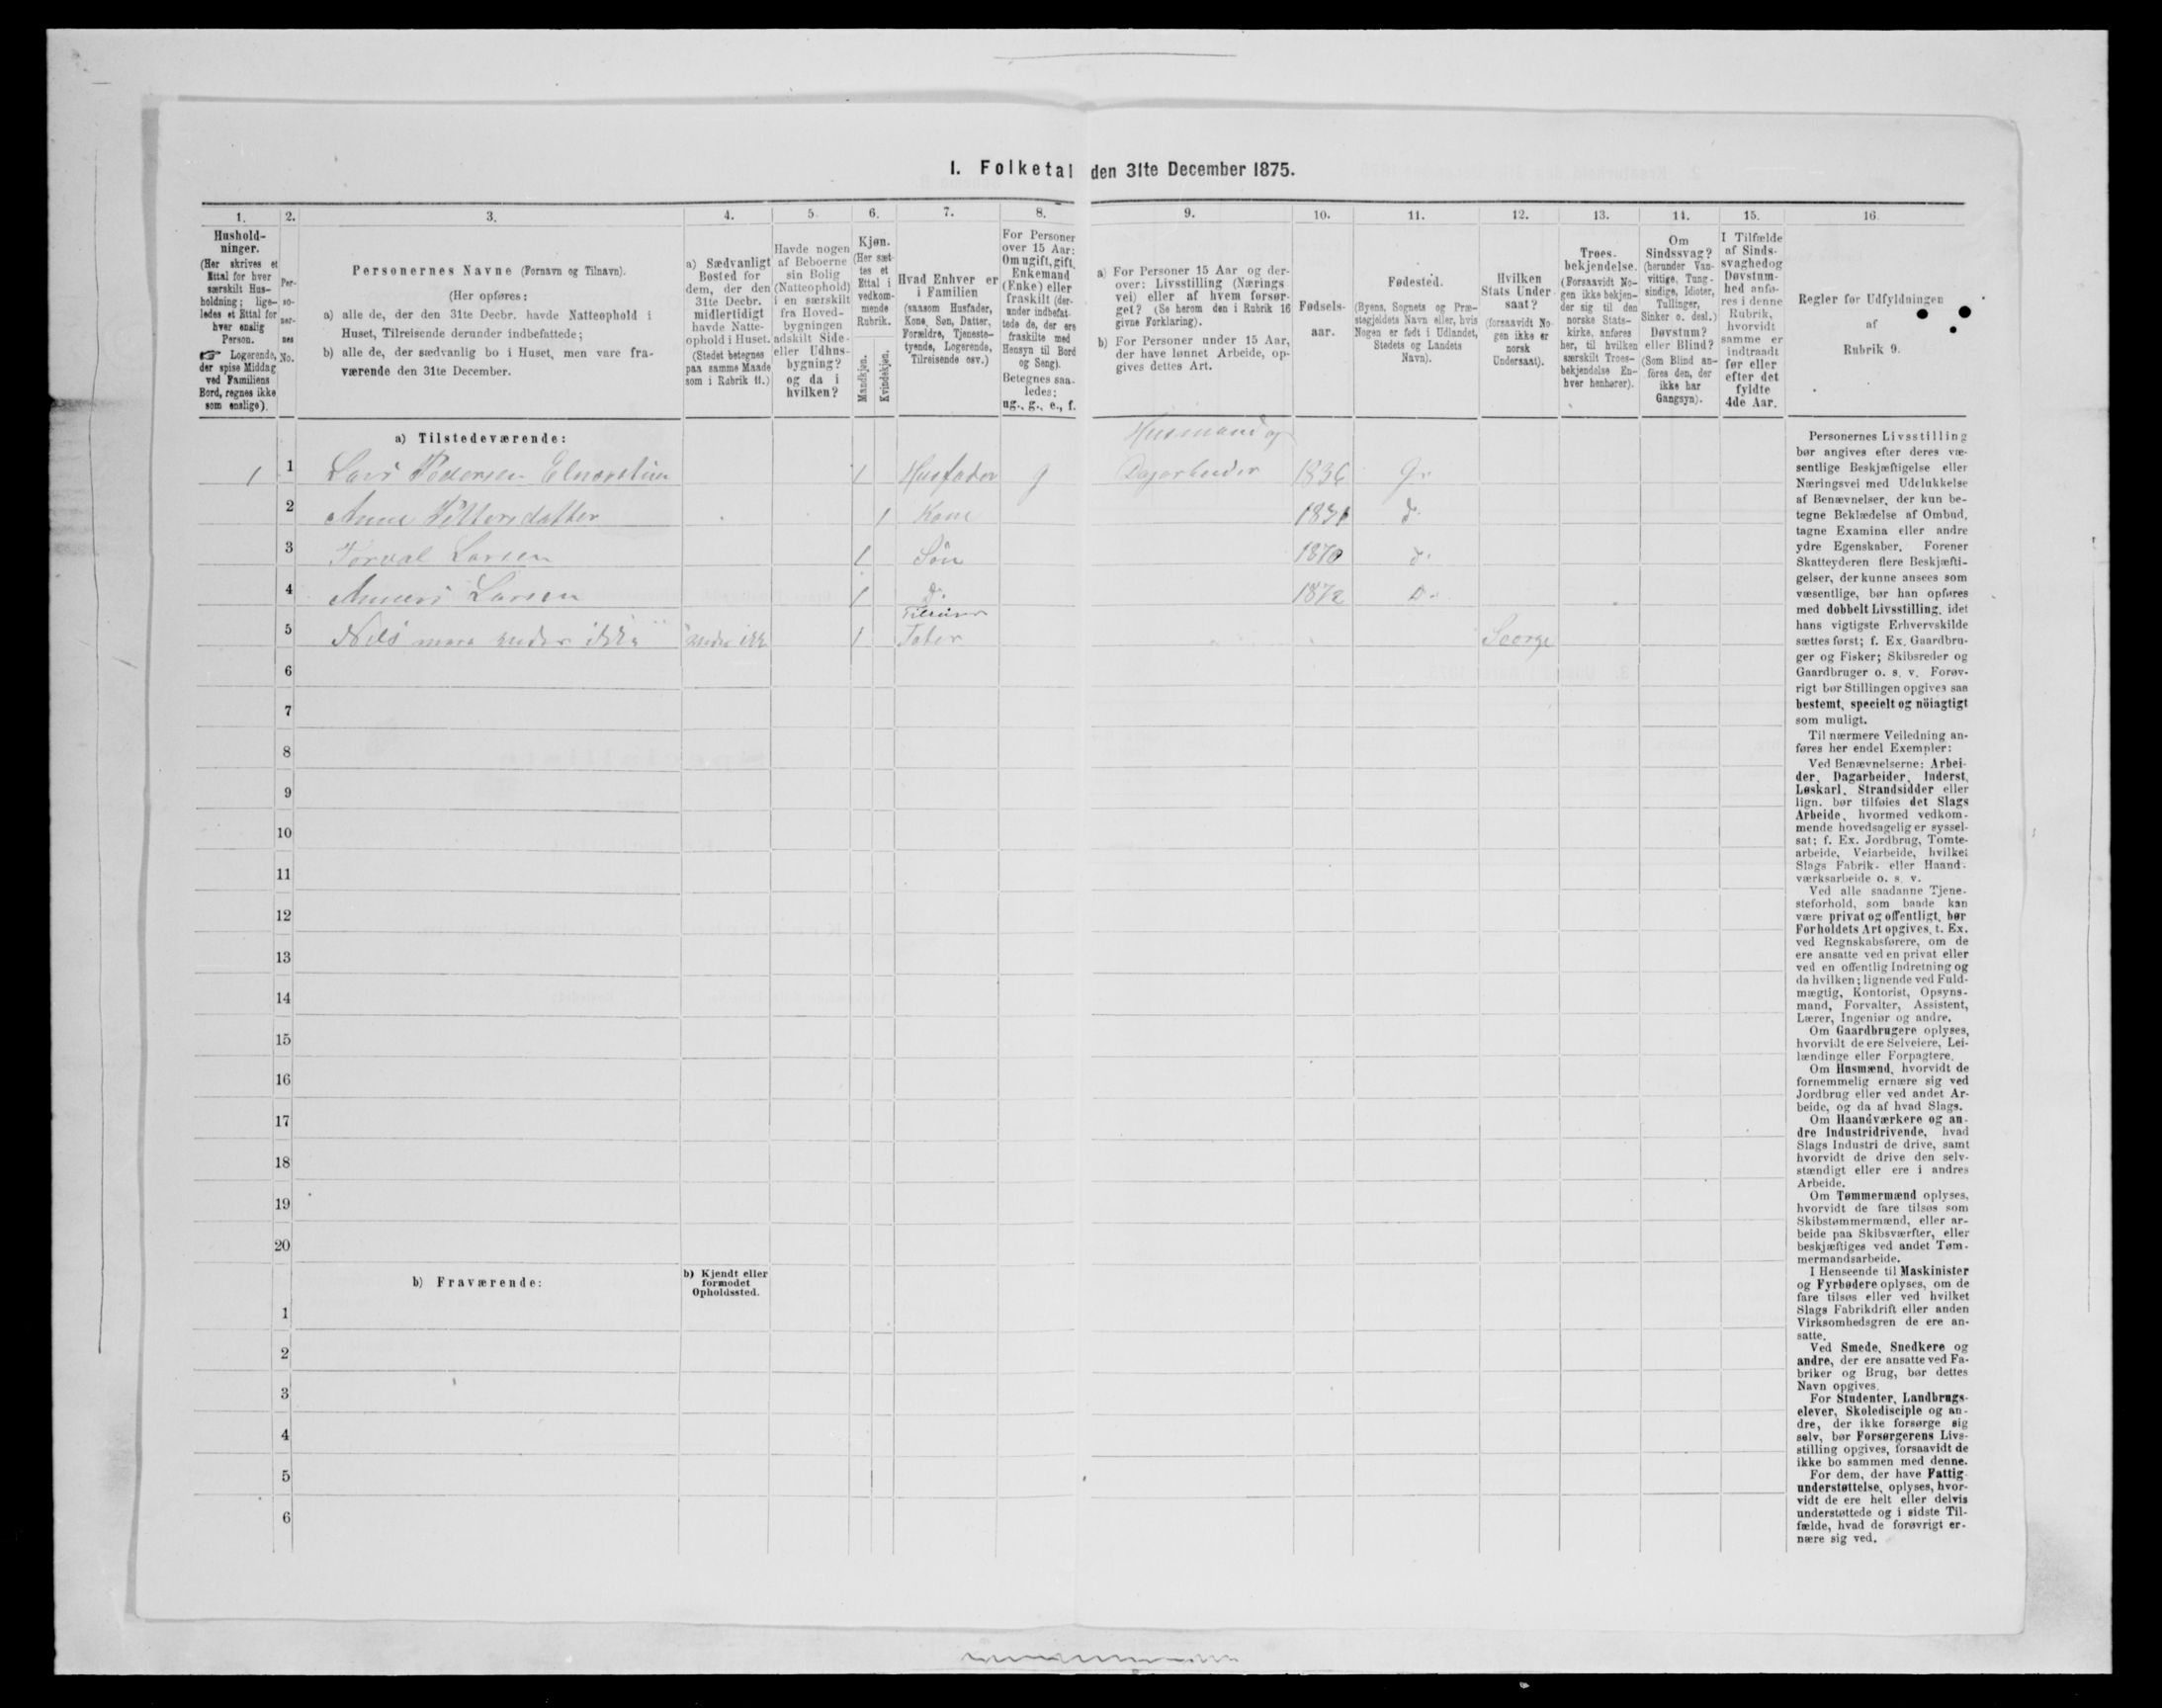 I. Folketal den 31te December 1875.
1.
2.
3.
4.
5.
6.
7.
8.
9.
10.
11.
12.
13.
14.
15.
16
Hushold-
ninger.
(Her skrives et
Ettal for hver
særskilt Hus-
holdning; lige-
ledes et Ettal for
hver enslig
Person.
☞ Logerende,
der spise Middag
ved Familiens
Bord, regnes ikke
som enslige).
Per-
so-
ner-
nes
No.
Personernes Navne (Fornavn og Tilnavn).
(Her opføres:
a) alle de, der den 31te Decbr. havde Natteophold i
Huset, Tilreisende derunder indbefattede;
b) alle de, der sædvanlig bo i Huset, men vare fra-
værende den 31te December.
a) Sædvanligt
Bosted for
dem, der den
31te Decbr.
midlertidigt
havde Natte-
ophold i Huset.
(Stedet betegnes
paa samme Maade
som i Rubrik 11.)
Havde nogen
af Beboerne
sin Bolig
(Natteophold)
i en særskilt
fra Hoved-
bygningen
adskilt Side-
eller Udhus-
bygning?
og da i
hvilken?
Kjøn.
(Her sæt-
tes et
Ettal i
vedkom-
mende
Rubrik.
Mandkjøn.
Kvindekjøn.
Hvad Enhver er
i Familien
(saasom Husfader,
Kone, Søn, Datter,
Forældre, Tjeneste-
tyende, Logerende,
Tilreisende osv.)
For Personer
over 15 Aar:
Om ugift, gift,
Enkemand
(Enke) eller
fraskilt (der-
under indbefat-
tede de, der ere
fraskilte med
Hensyn til Bord
og Seng).
Betegnes saa-
ledes:
ug., g., e., f.
a) For Personer 15 Aar og der-
over: Livsstilling (Nærings
vei) eller af hvem forsør-
get? (Se herom den i Rubrik 16
givne Forklaring).
b) For Personer under 15 Aar,
der have lønnet Arbeide, op-
gives dettes Art.
Fødsels-
aar.
Fødested.
(Byens, Sognets og Præ-
stegjeldets Navn eller, hvis
Nogen er født i Udlandet,
Stedets og Landets
Navn).
Hvilken
Stats Under
saat?
(forsaavidt No-
gen ikke er
norsk
Undersaat).
Troes-
bekjendelse.
(Forsaavidt No-
gen ikke bekjen-
der sig til den
norske Stats-
kirke, anføres
her, til hvilken
særskilt Troes-
bekjendelse En-
hver henhører).
Om
Sindssvag?
(herunder Van-
vittige, Tung-
sindige, Idioter,
Tullinger,
Sinker o. desl.)
Døvstum?
eller Blind?
(Som Blind an-
føres den, der
ikke har
Gangsyn).
I Tilfælde
af Sinds-
svaghed og
Døvstum-
hed anfø-
res i denne
Rubrik,
hvorvidt
samme er
indtraadt
før eller
efter det
fyldte
4de Aar.
Regler for Udfyldningen
af
Rubrik 9.
a) Tilstedeværende:
Husmand og
1 1 Lars Pedersen 1 Husfader g Dagarbeider 1836
2 Anne Pettersdatter 1 Kone
3 Larsen 1 Søn 1870
4 Larsen 1 D. 1872 D.
5 Nels ikke 1 Tater
6
7
8
9
10
11
12
13
14
15
16
17
18
19
20
b) Fraværende:
b) Kjendt eller
formodet
Opholdssted.
1
2
3
4
5
6
Personernes Livsstilling
bør angives efter deres væ-
sentlige Beskjæftigelse eller
Næringsvei med Udelukkelse
af Benævnelser, der kun be-
tegne Beklædelse af Ombud,
tagne Examina eller andre
ydre Egenskaber. Forener
Skatteyderen flere Beskjæfti-
gelser, der kunne ansees som
væsentlige, bør han opføres
med dobbelt Livsstilling, idet
hans vigtigste Erhvervskilde
sættes først; f. Ex. Gaardbru-
ger og Fisker; Skibsreder og
Gaardbruger o. s. v. Forøv-
rigt bør Stillingen opgives saa
bestemt, specielt og nöiagtigt
som muligt.
Til nærmere Veiledning an-
føres her endel Exempler:
Ved Benævnelserne: Arbei-
der, Dagarbeider, Inderst,
Løskarl, Strandsidder eller
lign. bør tilføies det Slags
Arbeide, hvormed vedkom-
mende hovedsagelig er syssel-
sat; f. Ex. Jordbrug, Tomte-
arbeide, Veiarbeide, hvilket
Slags Fabrik- eller Haand-
værksarbeide o. s. v.
Ved alle saadanne Tjene-
steforhold, som baade kan
være privat og offentligt, bør
Forholdets Art opgives, t. Ex.
ved Regnskabsførere, om de
ere ansatte ved en privat eller
ved en offentlig Indretning og
da hvilken; lignende ved Fuld-
mægtig, Kontorist, Opsyns-
mand, Forvalter, Assistent,
Lærer, Ingeniør og andre.
Om Gaardbrugere oplyses,
hvorvidt de ere Selveiere, Lei-
lændinge eller Forpagtere.
Om Husmænd, hvorvidt de
fornemmelig ernære sig ved
Jordbrug eller ved andet Ar-
beide, og da af hvad Slags.
Om Haandværkere og an-
dre Industridrivende, hvad
Slags Industri de drive, samt
hvorvidt de drive den selv-
stændigt eller ere i andres
Arbeide.
Om Tømmermænd oplyses,
hvorvidt de fare tilsøs som
Skibstømmermænd, eller ar-
beide paa Skibsværfter, eller
beskjæftiges ved andet Tøm-
mermandsarbeide.
I Henseende til Maskinister
og Fyrbødere oplyses, om de
fare tilsøs eller ved hvilket
Slags Fabrikdrift eller anden
Virksomhedsgren de ere an-
satte.
Ved Smede, Snedkere og
andre, der ere ansatte ved Fa-
briker og Brug, bør dettes
Navn opgives.
For Studenter, Landbrugs-
elever, Skoledisciple og an-
dre, der ikke forsørge sig
selv, bør Forsørgerens Livs-
stilling opgives, forsaavidt de
ikke bo sammen med denne.
For dem, der have Fattig-
understøttelse, oplyses, hvor-
vidt de ere helt eller delvis
understøttede og i sidste Til-
fælde, hvad de forøvrigt er-
nære sig ved.